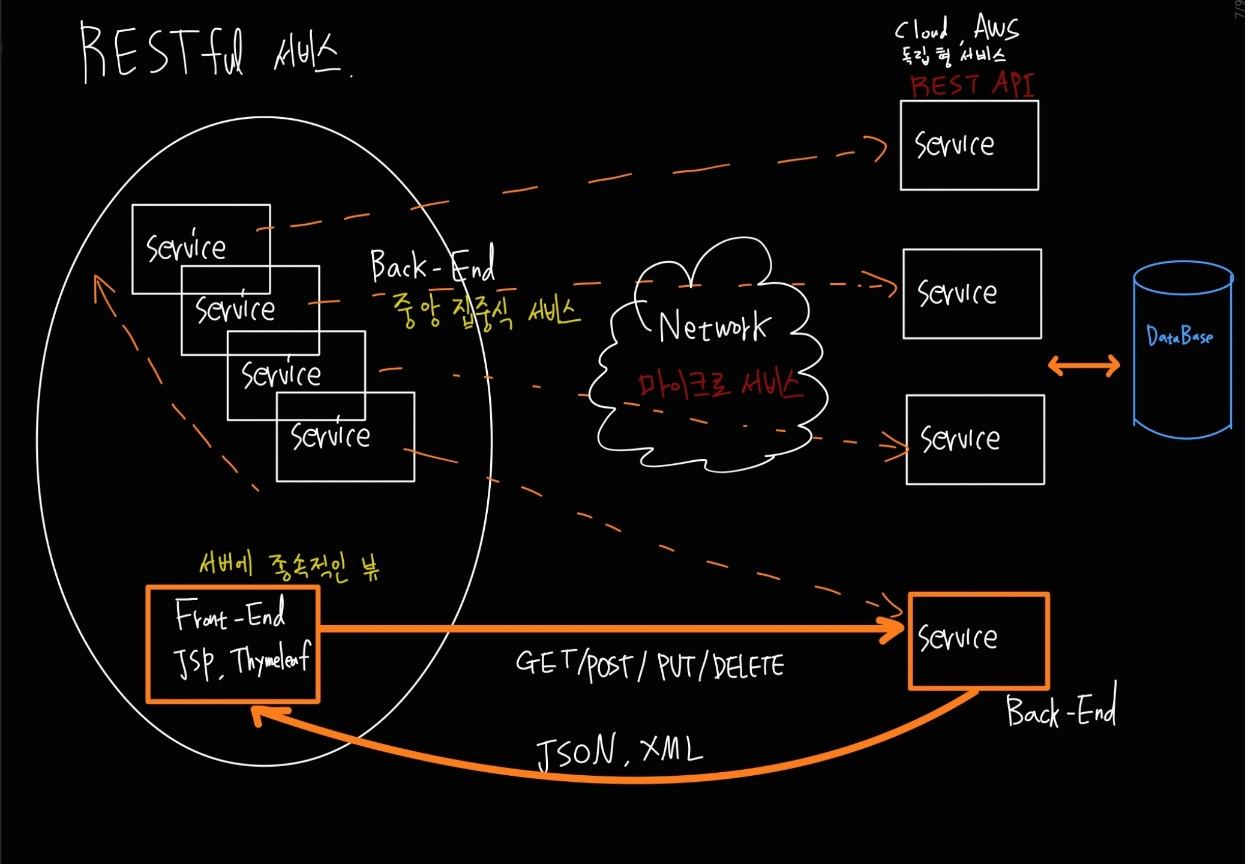 RESTful 서비스.
Cloud, AWS
독립형 서비스
REST API
Service
Service
Service
Service
Service
Back-End
중앙 집중식 서비스
Network
마이크로 서비스
Service
Service
DataBase
서버에 종속적인 뷰
Front-End
JSP, Thymeleaf
GET/POST/PUT/DELETE
Service
Back-End
JSON, XML